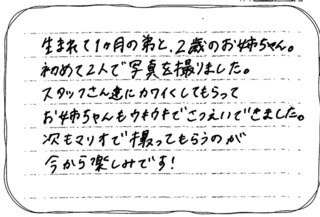 生まれて1ヶ月の弟と、2歳のお姉ちゃん。
初めて2人で写真を撮りました。
スタッフさん達にカワイくしてもらって
お姉ちゃんもウキウキでさつえいできました。
次もマリオで撮ってもらうのが
今から楽しみです!